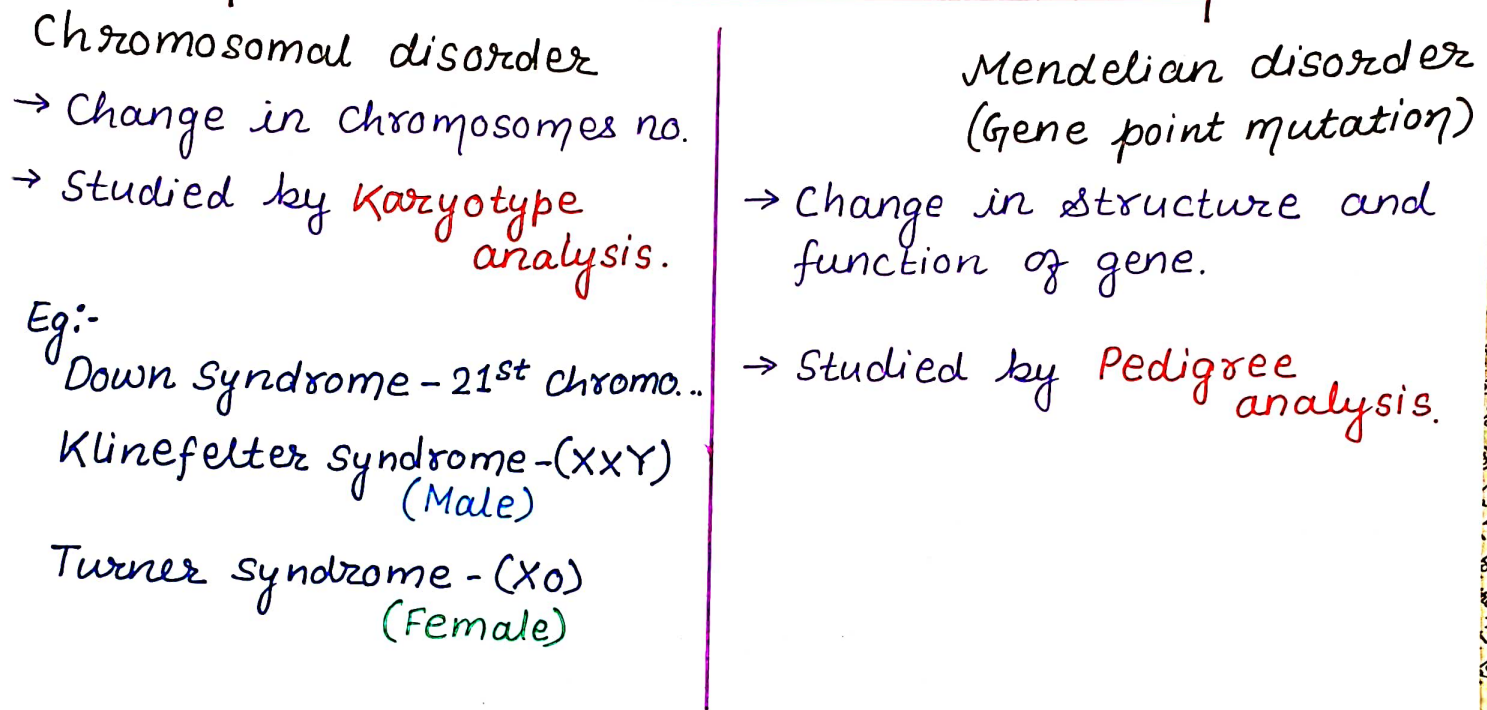 Chromosomal disorder
→ Change in chromosomes no.
→ Studied by Karyotype
analysis.
Eg:-
Down Syndrome - 21st chromo...
Klinefelter syndrome - (XXY)
(Male)
Turner syndrome - (XO)
(Female)
Mendelian disorder
(Gene point mutation)
→ Change in structure and
function of gene.
→ Studied by Pedigree
analysis.